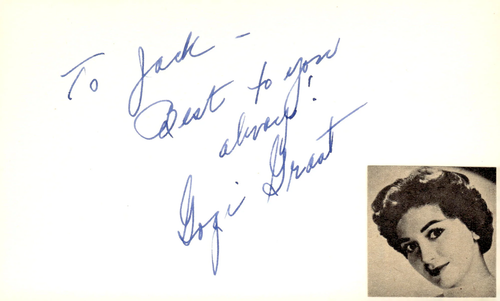 To Jack -
Best to you
always!
Gogi Grant